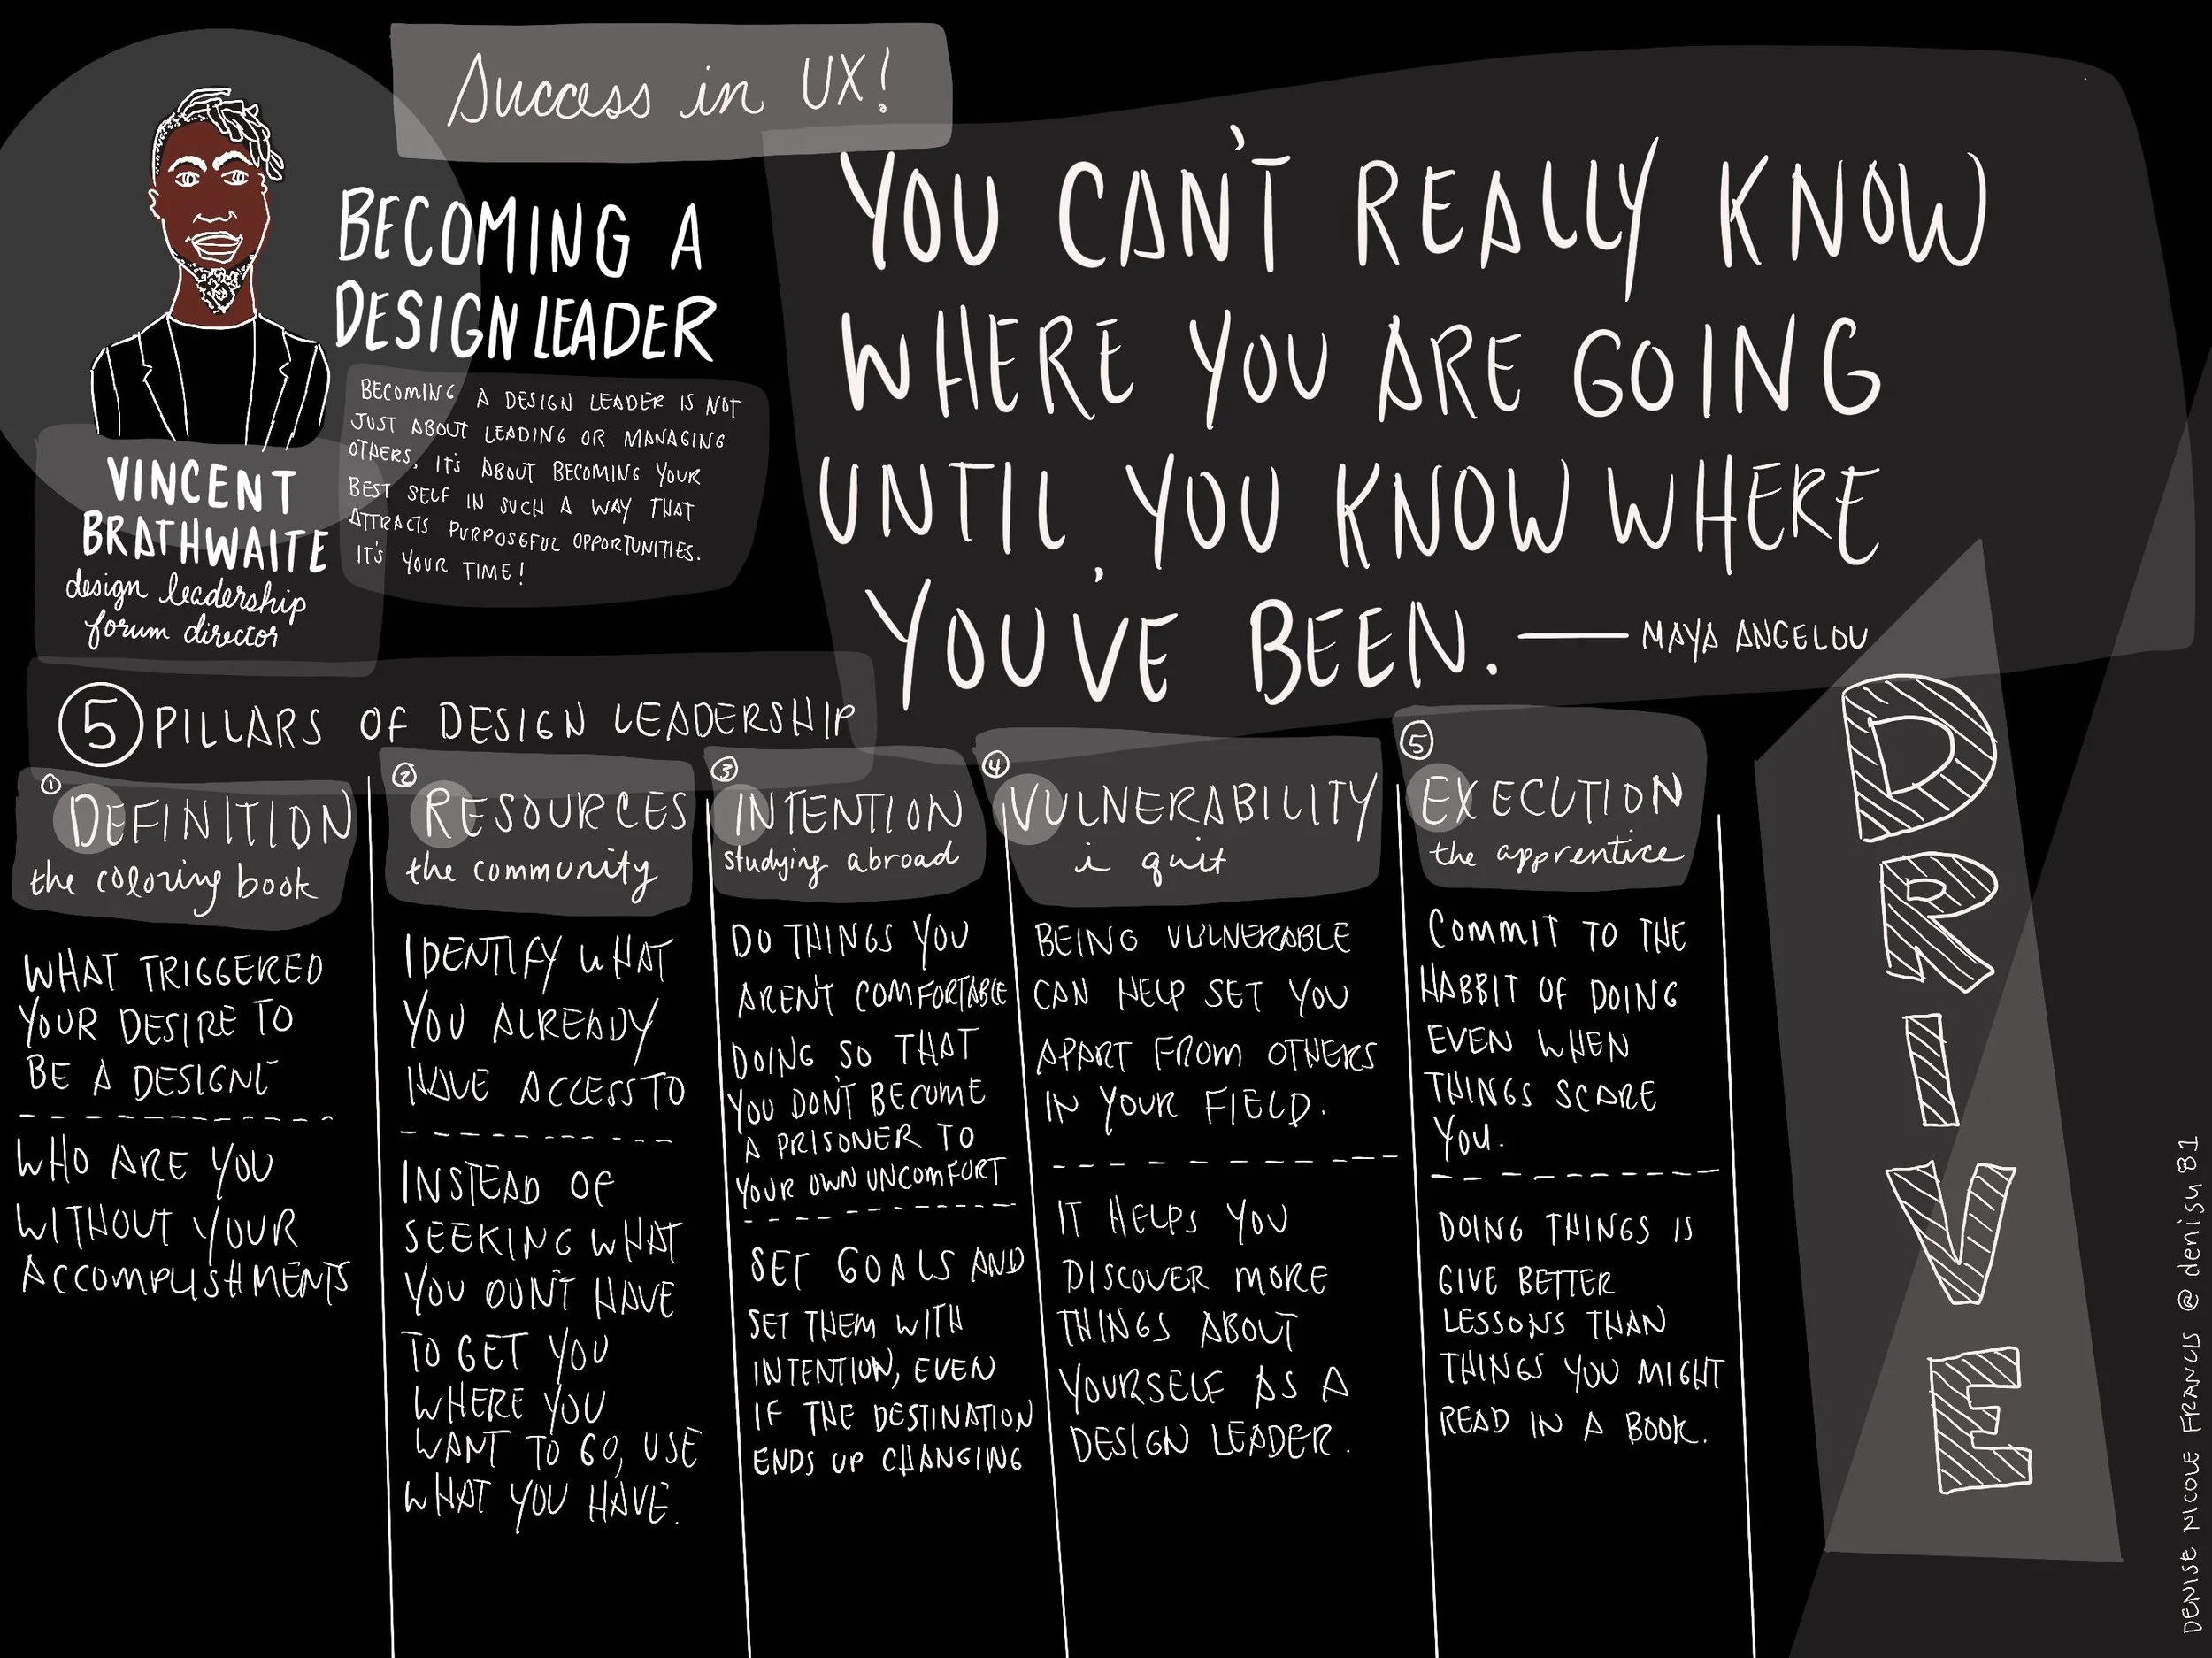 Success in UX!
BECOMING A
DESIGN LEADER
BECOMING A DESIGN LEADER IS NOT
JUST ABOUT LEADING OR MANAGING
OTHERS, IT'S ABOUT BECOMING YOUR
BEST SELF IN SUCH A WAY THAT
ATTRACTS PURPOSEFUL OPPORTUNITIES.
IT'S YOUR TIME!
VINCENT
BRATHWAITE
design leadership
forum director
YOU CAN'T REALLY KNOW
WHERE YOU ARE GOING
UNTIL YOU KNOW WHERE
YOU'VE BEEN. — MAYA ANGELOU
5 PILLARS OF DESIGN LEADERSHIP
1
DEFINITION
the coloring book
WHAT TRIGGERED
YOUR DESIRE TO
BE A DESIGNE
WHO ARE YOU
WITHOUT YOUR
ACCOMPLISHMENTS
2
RESOURCES
the community
IDENTIFY WHAT
YOU ALREADY
HAVE ACCESS TO
INSTEAD OF
SEEKING WHAT
YOU DON'T HAVE
TO GET YOU
WHERE YOU
WANT TO GO, USE
WHAT YOU HAVE.
3
INTENTION
studying abroad
DO THINGS YOU
AREN'T COMFORTABLE
DOING SO THAT
YOU DON'T BECOME
A PRISONER TO
YOUR OWN UNCOMFORT
SET GOALS AND
SET THEM WITH
INTENTION, EVEN
IF THE DESTINATION
ENDS UP CHANGING
4
VULNERABILITY
i quit
BEING VULNERABLE
CAN HELP SET YOU
APART FROM OTHERS
IN YOUR FIELD.
IT HELPS YOU
DISCOVER MORE
THINGS ABOUT
YOURSELF AS A
DESIGN LEADER.
5
EXECUTION
the apprentice
COMMIT TO THE
HABBIT OF DOING
EVEN WHEN
THINGS SCARE
YOU.
DOING THINGS IS
GIVE BETTER
LESSONS THAN
THINGS YOU MIGHT
READ IN A BOOK.
DRIVE
DENISE NICOLE FRANCIS @denisu81